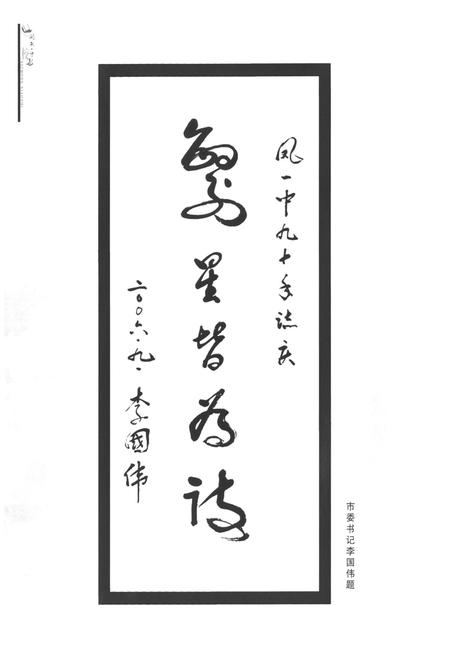 凤一中九十年志庆
繁星皆为诗
二〇〇六·九·李國伟
市委书记李国伟题